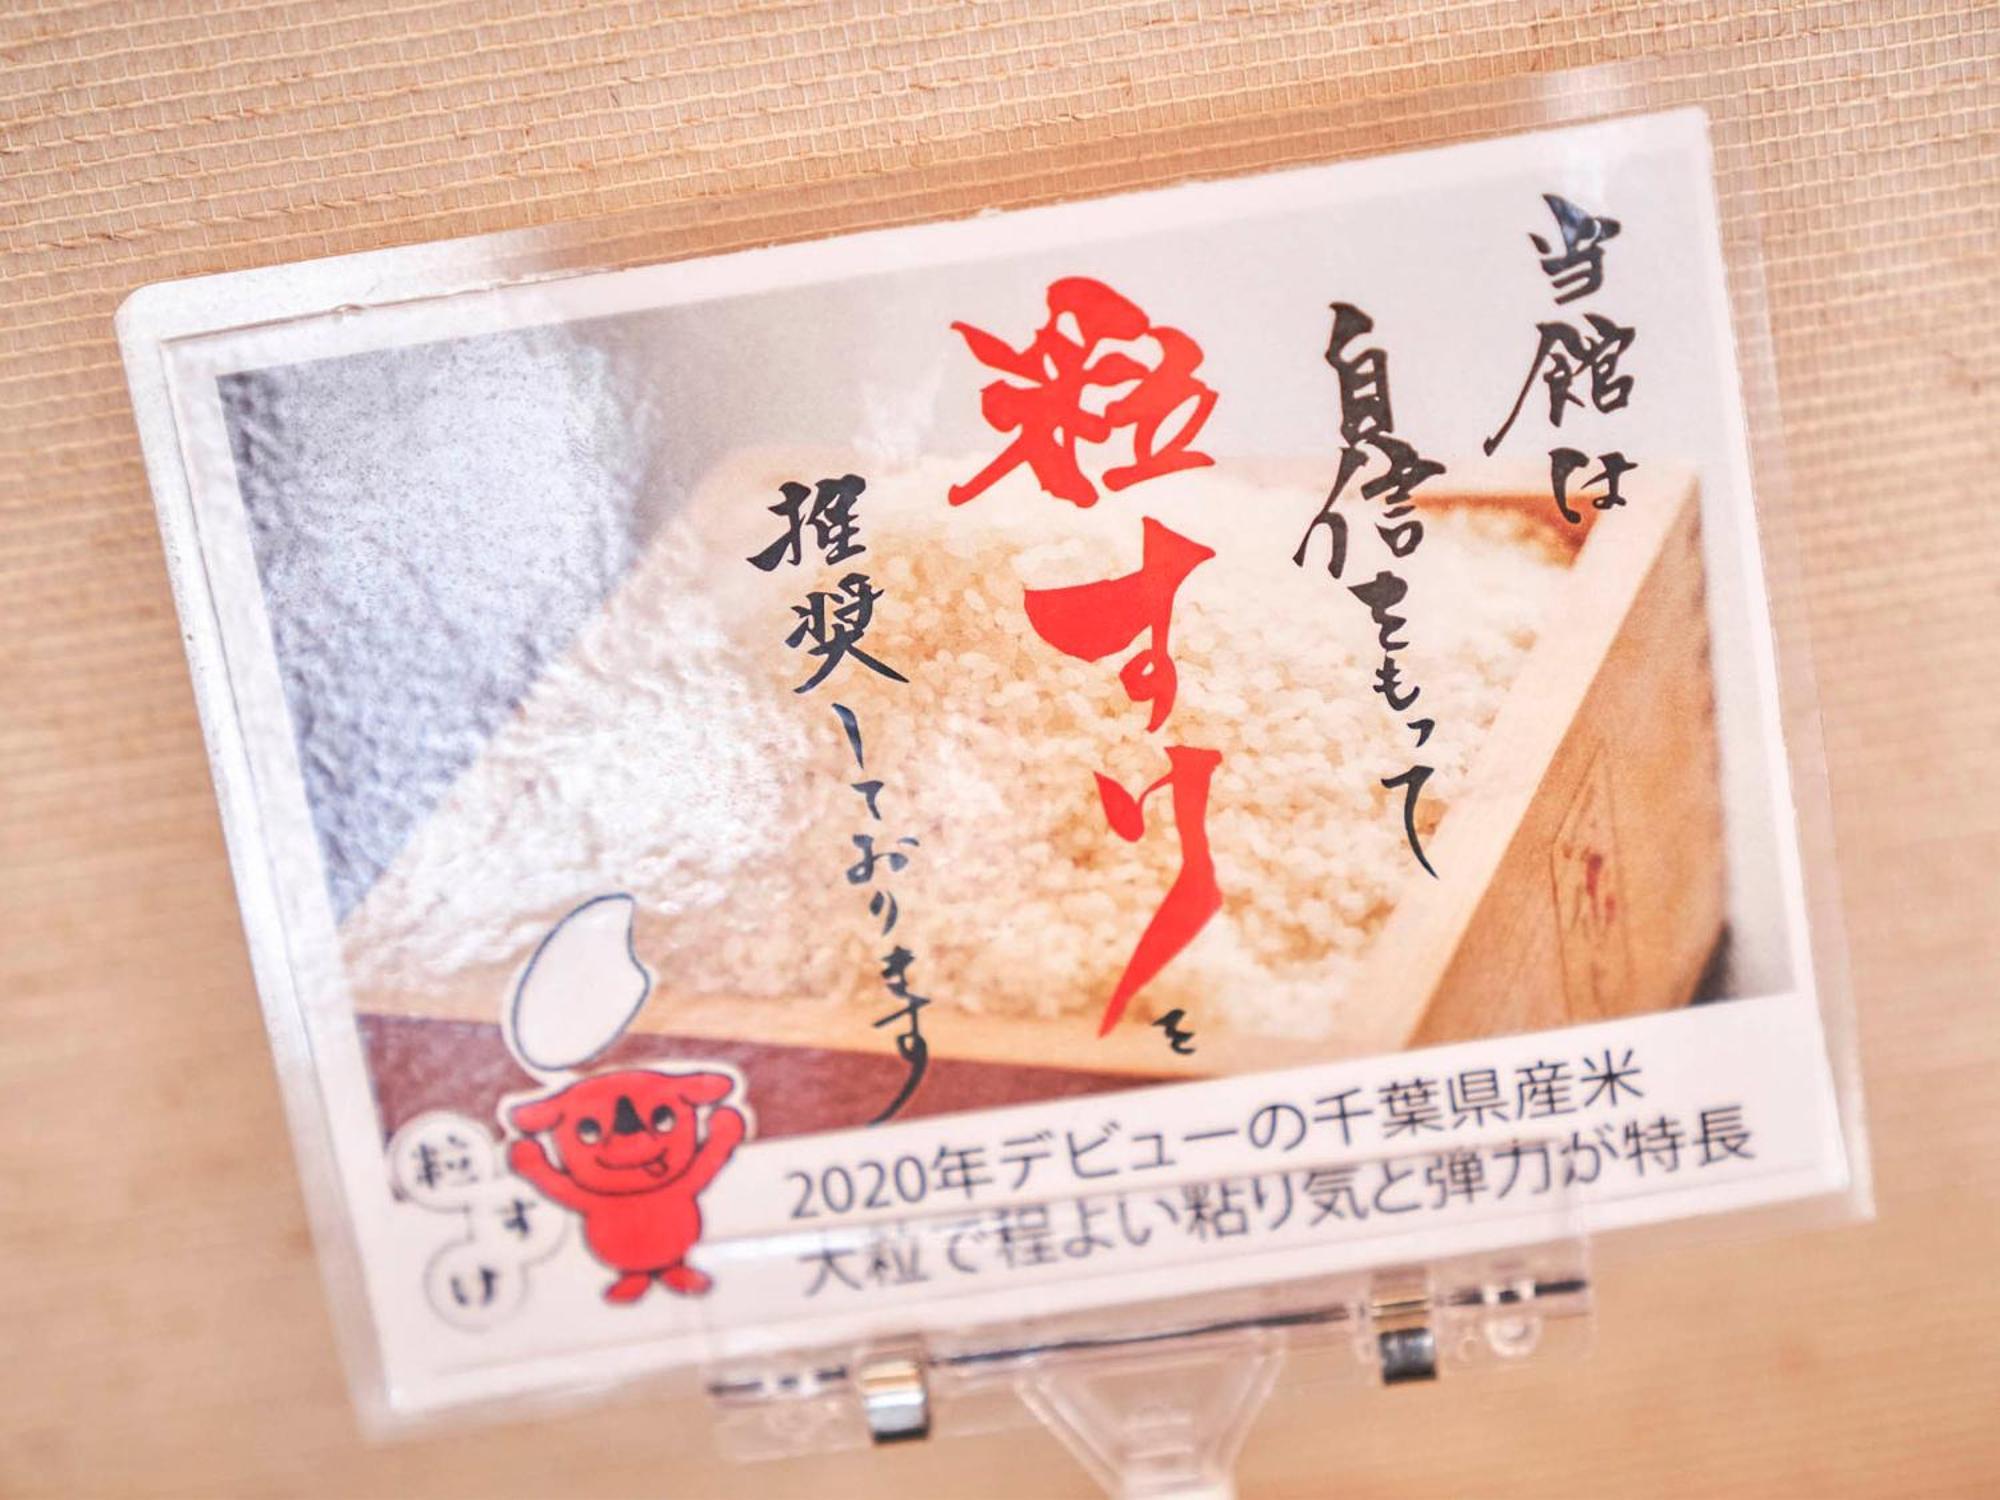 当館は
自信をもって
粒すけを
推奨しております
粒すけ
2020年デビューの千葉県産米
大粒で程よい粘り気と弾力が特長